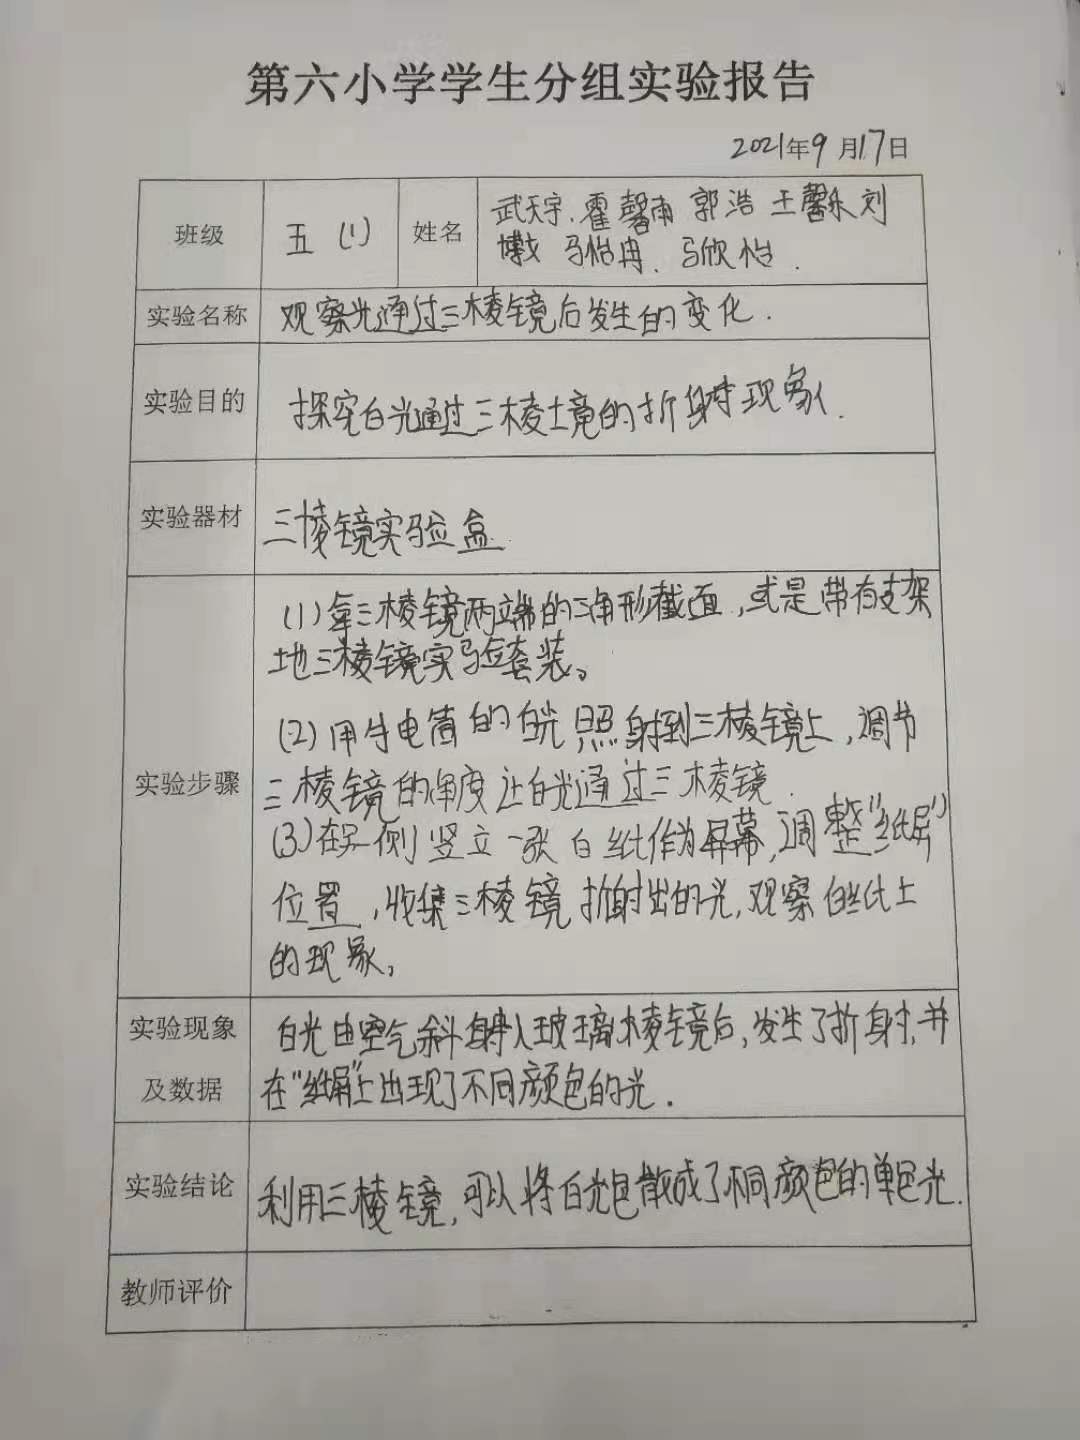 第六小学学生分组实验报告
2021年9月17日
班级 五(1) 姓名 武天宇、霍馨雨 郭浩 王馨乐 刘
博文 马怡冉、马欣怡.
实验名称 观察光通过三棱镜后发生的变化.
实验目的 探究白光通过三棱镜的折射现象.
实验器材 三棱镜实验盒
实验步骤
(1)拿三棱镜两端的三角形截面,或是带有支架
地三棱镜实验套装。
(2)用手电筒的白光照射到三棱镜上,调节
三棱镜的角度让白光通过三棱镜.
(3)在另一侧竖立一张白纸作为屏幕,调整"纸屏"
位置,收集三棱镜折射出的光,观察白纸上
的现象,
实验现象 白光由空气斜射入玻璃棱镜后,发生了折射,并
及数据 在"纸屏"上出现了不同颜色的光.
实验结论 利用三棱镜,可以将白光色散成了不同颜色的单色光.
教师评价